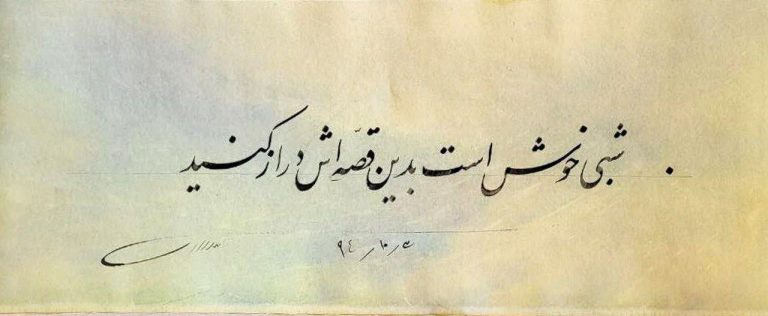 شبی خوش است بدین قصّه اش دراز کنید